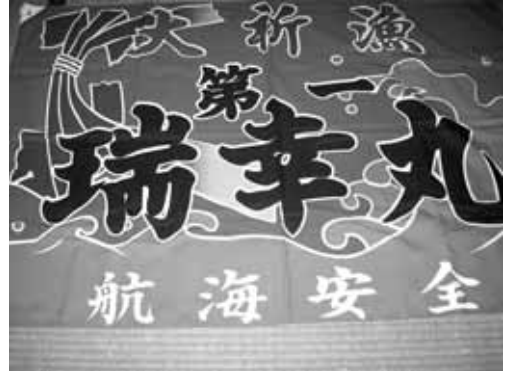 大祈漁
第一
瑞幸丸
航海安全